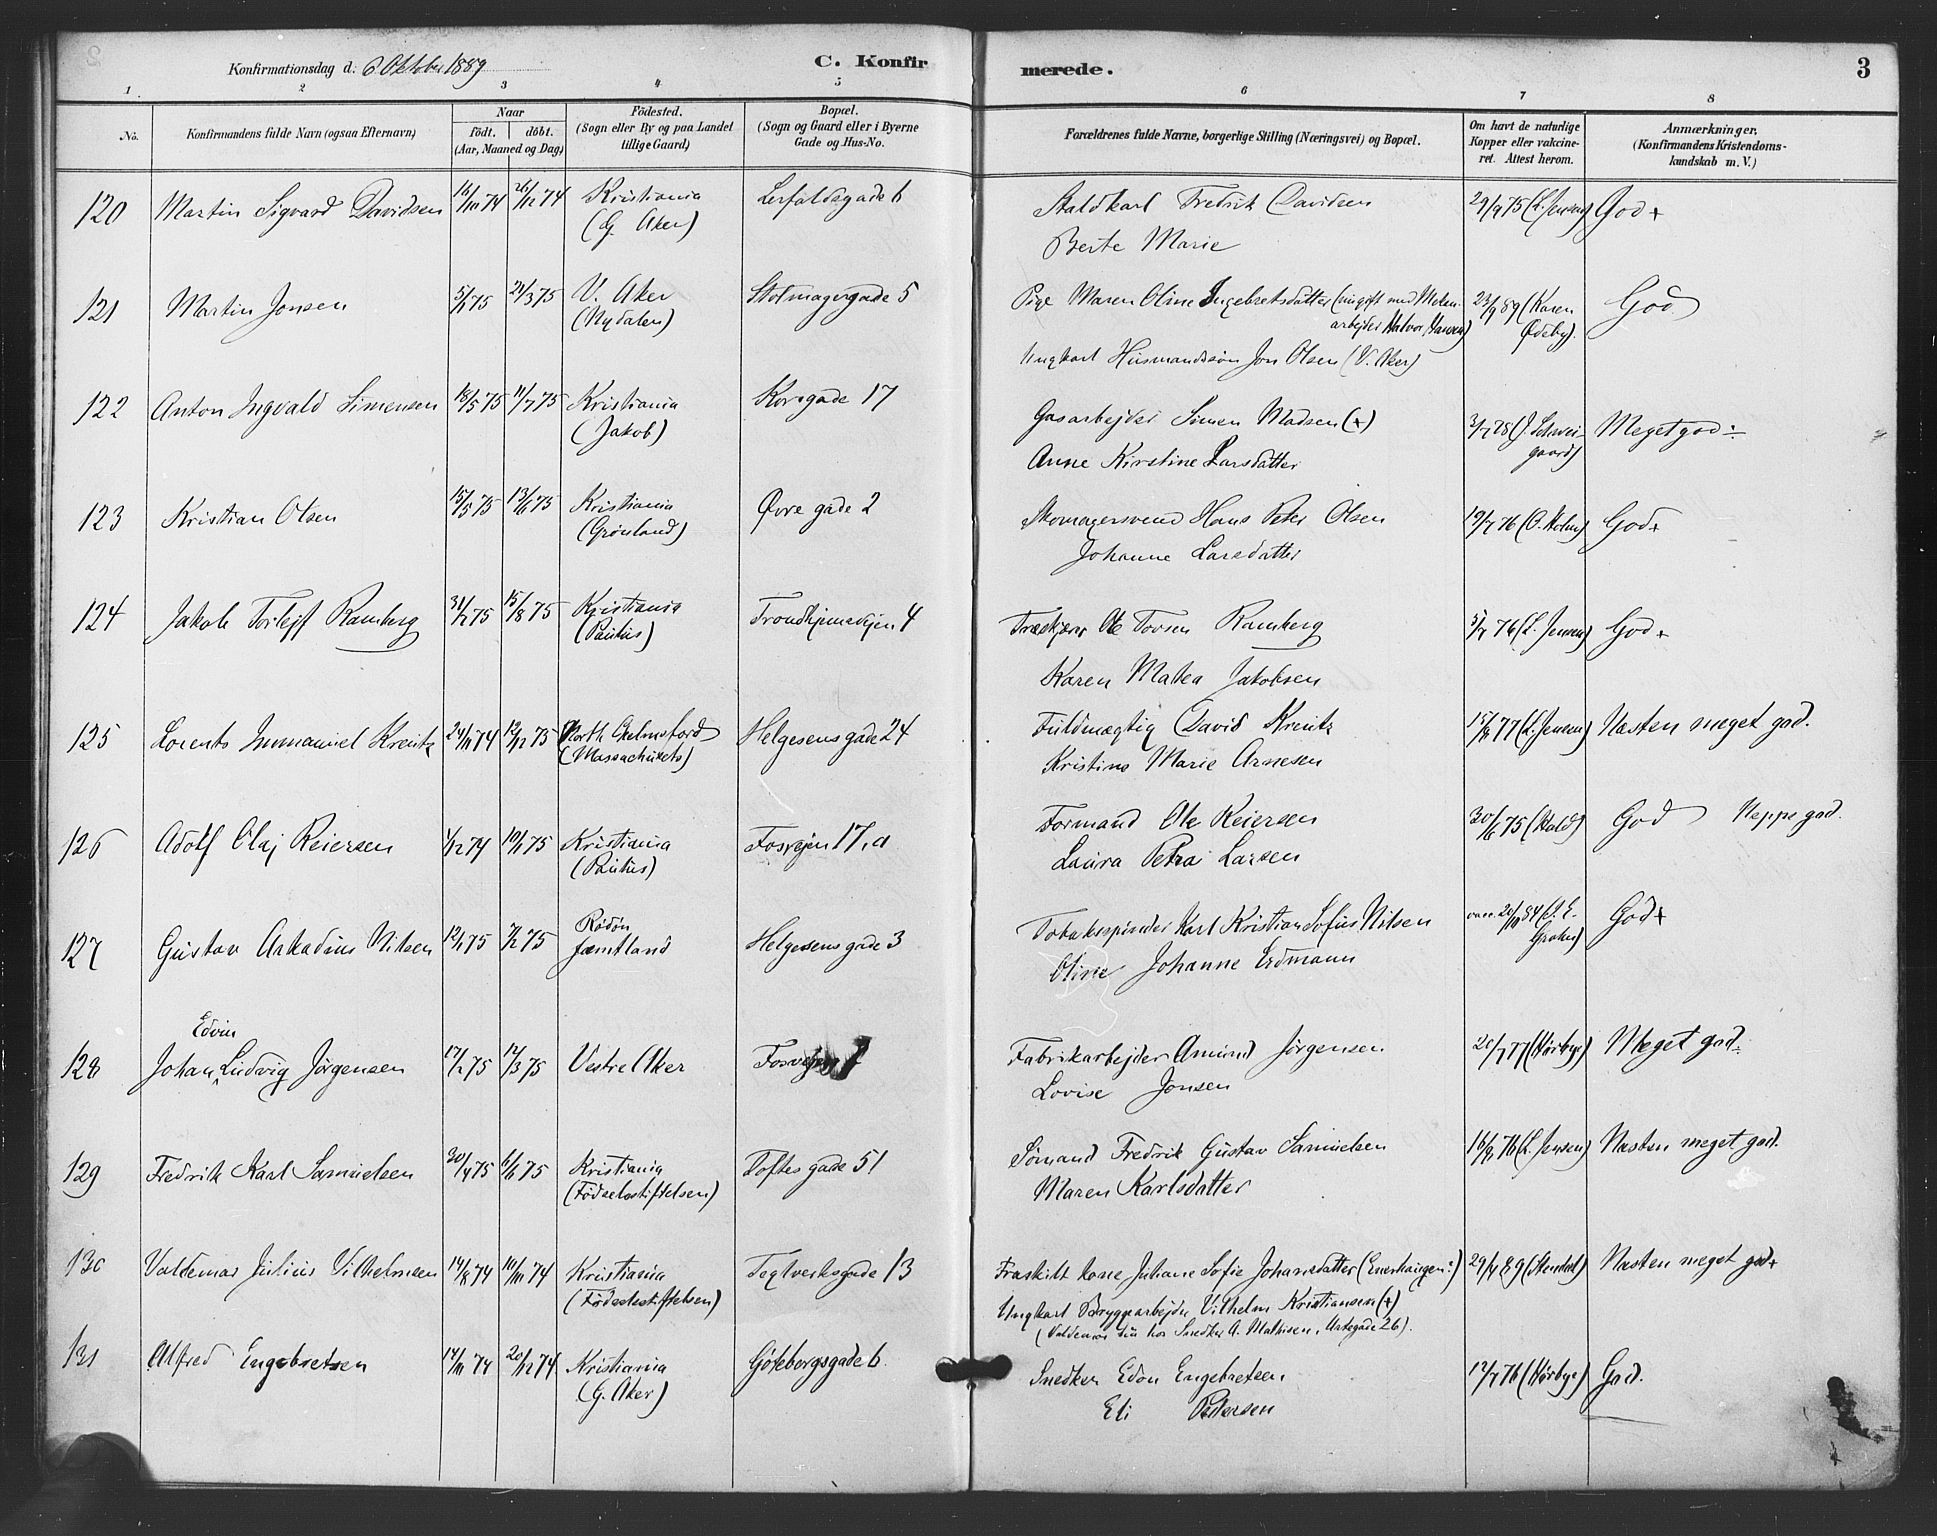 Konfirmationsdag d: 6 Oktober 1889
C. Konfirmerede.
3
1 2 3 4 5 6 7 8
No.
Konfirmandens fulde Navn (ogsaa Efternavn)
Naar
födt. | döbt.
(Aar, Maaned og Dag)
Födested.
(Sogn eller By og paa Landet
tillige Gaard)
Bopæl.
(Sogn og Gaard eller i Byerne
Gade og Hus-No.
Forældrenes fulde Navne, borgerlige Stilling (Næringsvei) og Bopæl.
Om havt de naturlige
Kopper eller vakcine-
ret. Attest herom.
Anmærkninger.
(Konfirmandens Kristendoms-
kundskab m. V.)
120 Martin Sigvard Davidsen 16/10 74 26/12 74 Kristiania (G. Aker) Lerfaldsgade 6
Staldkarl Fredrik Davidsen 29/9 75 (L. Jensen) God +
Berte Marie
121 Martin Jonsen 5/1 75 21/3 75 V. Aker (Nydalen) Stolmagergade 5
Pige Maren Oline Ingebretsdatter (nu gift med Mekan. arbejder Halvor Hansen) 23/9 89 (Karen Ødeby). God
Ungkarl Husmandssøn Jon Olsen (V. Aker)
122 Anton Ingvald Simensen 18/5 75 11/7 75 Kristiania (Jakob) Korsgade 17
Gasarbejder Simen Madsen (+) 3/7 78 (J. Schweigaard) Meget god ÷
Anne Kirstine Larsdatter
123 Kristian Olsen 15/5 75 13/6 75 Kristiania (Grönland) Øvre gade 2
Skomagersvend Hans Peter Olsen 19/7 76 (O. Holm) God +
Johanne Larsdatter
124 Jakob Torlejf Ramberg 31/2 75 15/8 75 Kristiania (Paulus) Trondhjemsvejen 4
Træskjærer Ole Tovsen Ramberg 5/7 76 (L. Jensen) God +
Karen Matea Jakobsen
125 Lorents Immanuel Kreutz 24/11 74 12/12 75 North Chelmsford (Massachusets) Helgesens gade 24
Fuldmægtig David Kreutz 15/8 77 (L. Jensen) Næsten meget god.
Kristine Marie Arnesen
126 Adolf Olaf Reiersen 1/12 74 10/1 75 Kristiania (Paulus) Fosvejen 17, a
Formand Ole Reiersen 30/6 75 (Hald) God Neppe god.
Laura Petra Larsen
127 Gustav Arkadius Nilsen 12/1 75 7/2 75 Rödön Jæmtland Helgesens gade 3
Tobakspinder Karl Kristian Sofus Nilsen vacc. 20/10 84 (J. E. Grahn) God +
Oline Johanne Erdmann
Edvin
128 Johan Ludvig Jörgensen 17/2 75 17/3 75 Vestre Aker Fosvejen 7
Fabrikarbejder Amund Jørgensen 20/7 77 (Hørbye) Meget god.
Lovise Jonsen
129 Fredrik Karl Samuelsen 30/4 75 6/6 75 Kristiania (Födselsstiftelsen) Toftes gade 51
Sømand Fredrik Gustav Samuelsen 16/8 76 (L. Jensen) Næsten meget god.
Maren Karlsdatter
130 Valdemar Julius Vilhelmsen 14/8 74 16/10 74 Kristiania (Födselsstiftelsen) Teglverksgade 13
Fraskilt kone Juliane Sofie Johansdatter (Enerhaugen:) 29/4 89 (Stendal) Næsten meget god +
Ungkarl Bryggearbejder Vilhelm Kristiansen (+)
(Valdemar bur hos Snedker A. Mathisen, Urtegade 26).
131 Alfred Engebretsen 14/10 74 20/12 74 Kristiania (G. Aker) Göteborgsgade 6.
Snedker Edon Engebretsen 12/7 76 (Hørbye) God.
Eli Pedersen